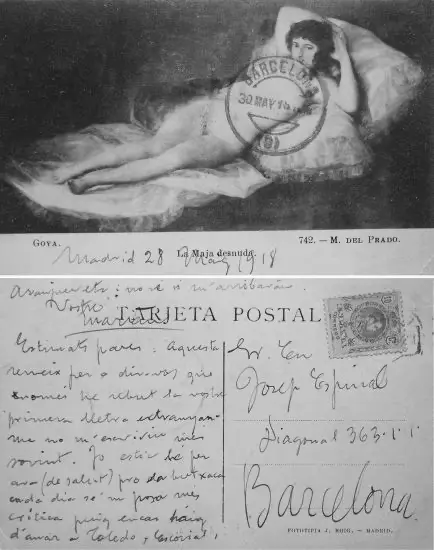 BARCELONA
30 MAY 18
GOYA.
La Maja desnuda.
742. — M. DEL PRADO.
Madrid 28 Maig 1918
Aranjuez etz: no sé si m'arribarán
Vostre
Marcial
TARJETA POSTAL
Estimats pares: Aquesta
serveix per a dir-vos que
només he rebut la vostre
primera lletra extranyan-
me no m'escriviu més
sovint. Jo estic bé per
ara (de salut) pro de butxaca
cada dia se'm posa mes
critica puig encar haig
d'anar a Toledo, Escorial,
Sr. En
Josep Espinal
Diagonal 363-1-1
Barcelona
FOTOTIPIA J. ROIG. — MADRID.